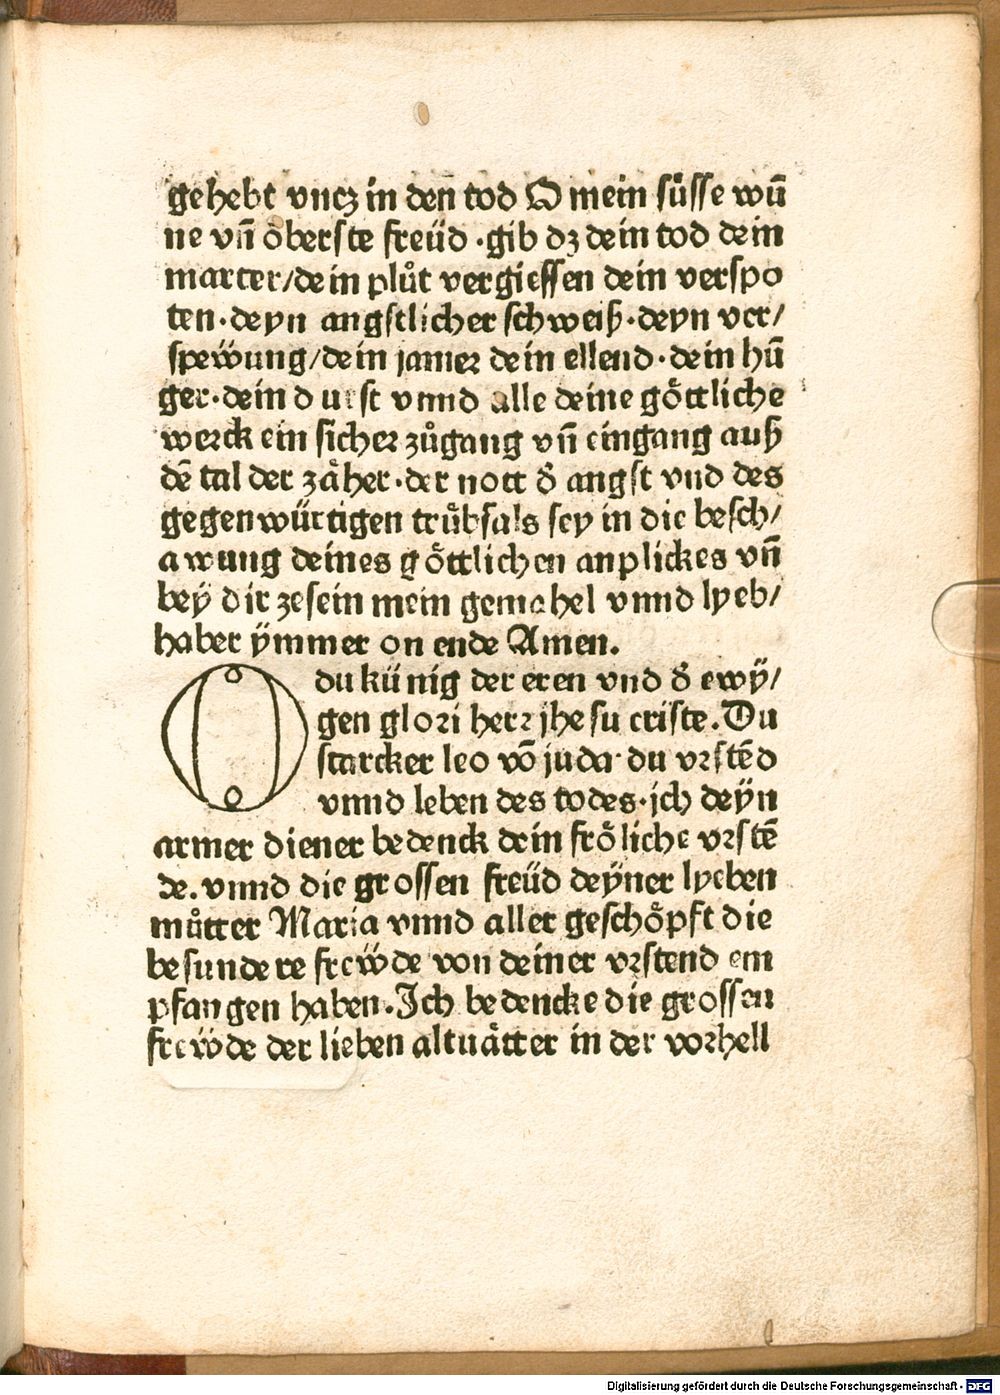 gehebt vncz in den̄ tod O mein süsse wū
ne vn̄ öberste freüd ·gib dz dein tod dein
marter/dein plůt vergiessen dein verspo
ten·deyn angstlicher schweiß·deyn ver/
speẅung/dein jamer dein ellend·dein hū
ger·dein durst vnnd alle deine göttliche
werck ein sicher zůgang vn̄ eingang auß
dē tal der zäher·der nott d̄ angst vnd des
gegenwürtigen trübsals sey in die besch/
awung deines göttlichen anplickes vn̄
beÿ dir zesein mein gemahel vnnd lyeb/
haber ÿmmer on ende Amen.
O du künig der eren vnd d̄ ewÿ/
gen glori herr jhesu criste. Du
starcker leo vō juda· du vrstēd
vnnd leben des todes·jch deÿn
armer diener bedenck dein fröliche vrstē
de. vnnd die grossen freüd deÿner lyeben
můtter Maria vnnd aller geschöpft die
besundere freẅde von deiner vrstend em
pfangen haben. Ich bedencke die grossen
freẅde der lieben altuätter in der vorhell
Digitalisierung gefördert durch die Deutsche Forschungsgemeinschaft - DFG